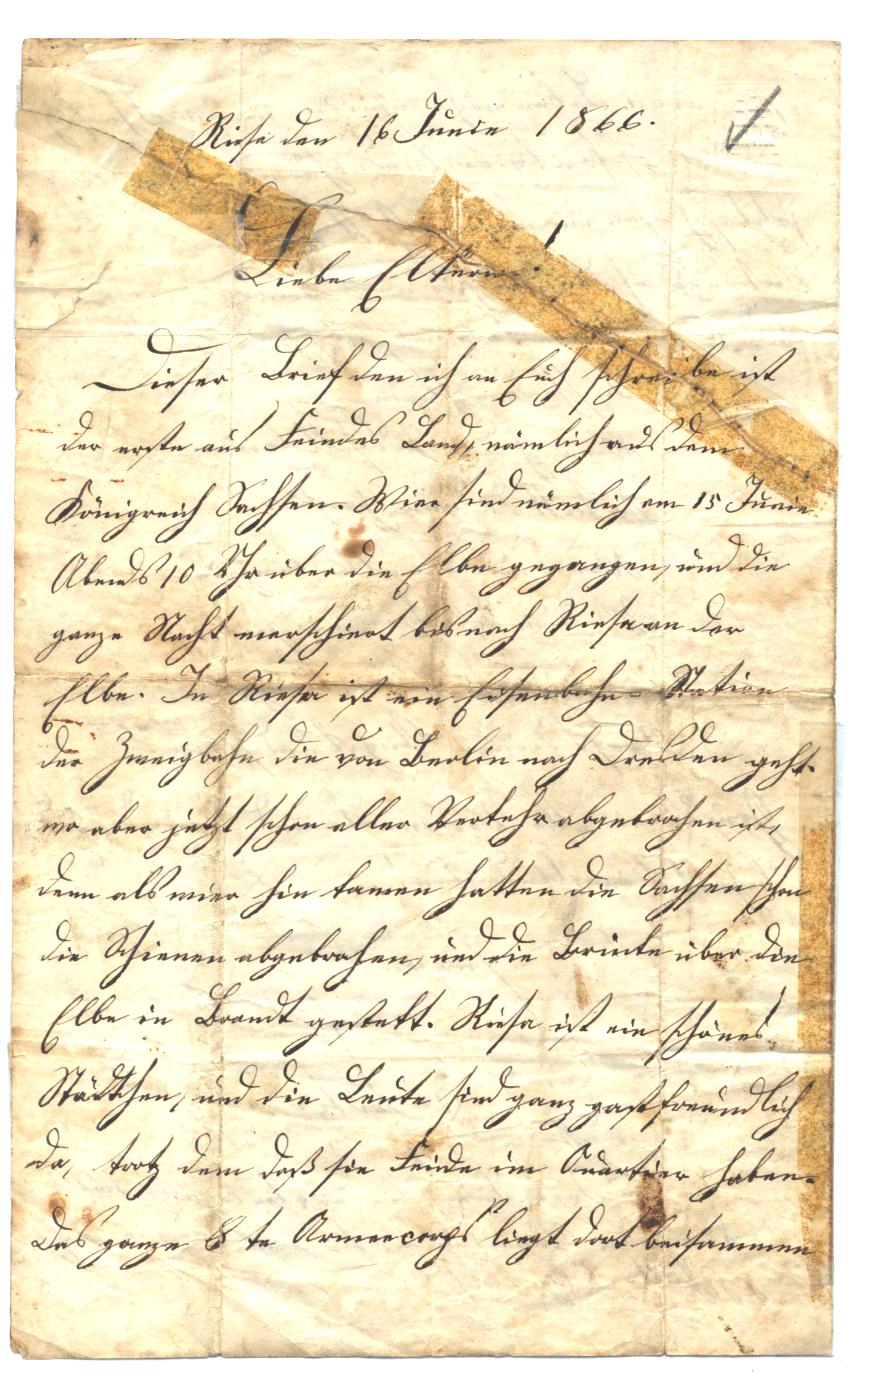 Riesa den 16 Junie 1866.
Liebe Eltern!
Dieser Brief den ich an Euch schreibe ist
der erste aus Feindes Land, nämlich aus dem
Königreich Sachsen. Wier sind nämlich am 15 Junie
Abends 10 Uhr über die Elbe gegangen, und die
ganze Nacht marschiert bis nach Riesa an der
Elbe. In Riesa ist ein Eisenbahn-Station
der Zweigbahn die von Berlin nach Dresden geht.
wo aber jetzt schon aller Verkehr abgebrochen ist,
denn als wier hin kamen hatten die Sachsen schon
die Schienen abgebrochen, und die Brücke über die
Elbe in Brandt gestekt. Riesa ist ein schönes
Städtchen, und die Leute sind ganz gastfreundlich
da, trotz dem daß sie Feinde im Quartier haben.
Das ganze 8 te Armeecorps liegt dort beisammen